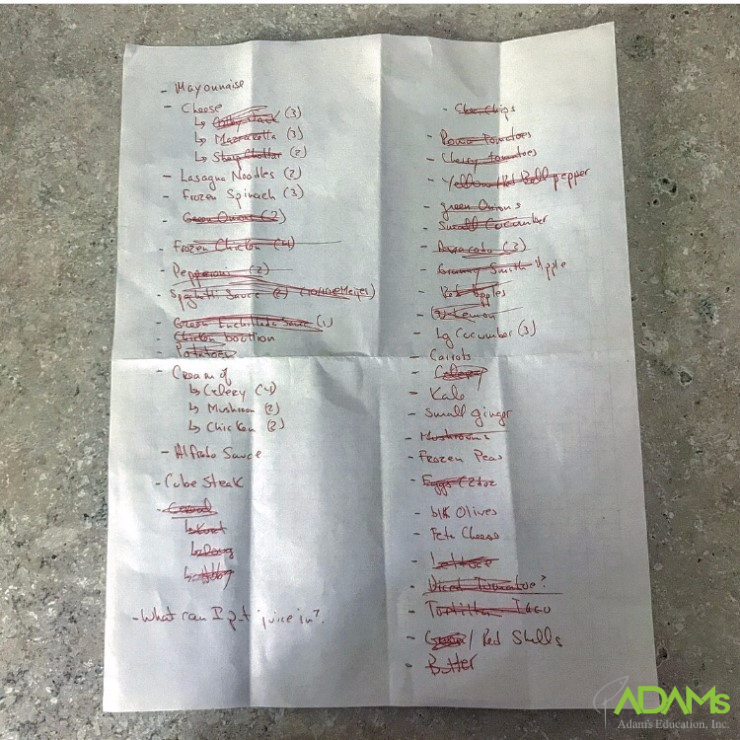 - Mayonnaise
- Cheese
↳ Colby Jack (3)
↳ Mozzarella (3)
↳ (2)
- Lasagna Noodles (2)
- Frozen Spinach (3)
- Green Onion (2)
- Frozen Chicken (4)
- Pepperoni (2)
- Spaghetti Sauce (2)
- Green Enchilada Sauce (1)
- Chicken boullion
- Potatoes
- Cream of
↳ Celery (4)
↳ Mushroom (2)
↳ Chicken (2)
- Alfredo Sauce
- Cube Steak
- Cereal
- What can I put juice in?
- Chips
- Roma Tomatoes
- Cherry tomatoes
- Yellow/Red Bell pepper
- green Onions
- Small Cucumber
- (3)
- Granny Smith Apple
- Apples
- Lemon
- Lg Cucumber (3)
- Carrots
- Celery
- Kale
- Small ginger
- Mushrooms
- Frozen Peas
- Eggs
- blk Olives
- Feta Cheese
- Lettuce
- Diced Tomatoe?
- Tortilla
- Green / Red Shells
- Butter
ADAMs
Adam's Education, Inc.